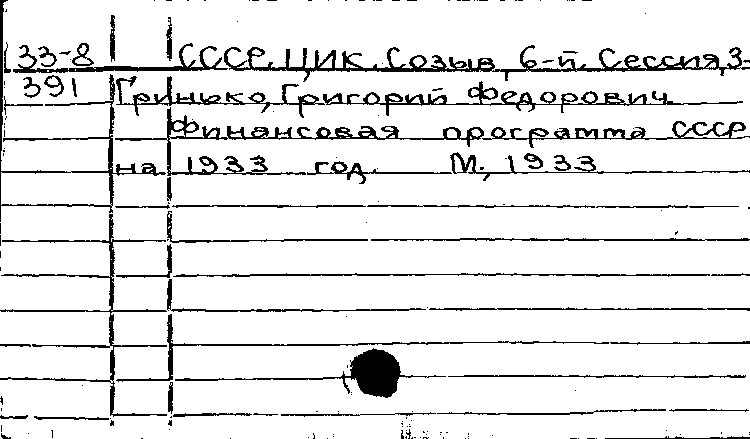 33-8 СССР. ЦИК. Созыв, 6-й. Сессия, 3-
391 Гринько, Григорий Федорович.
Финансовая программа СССР
на 1933 год. М., 1933